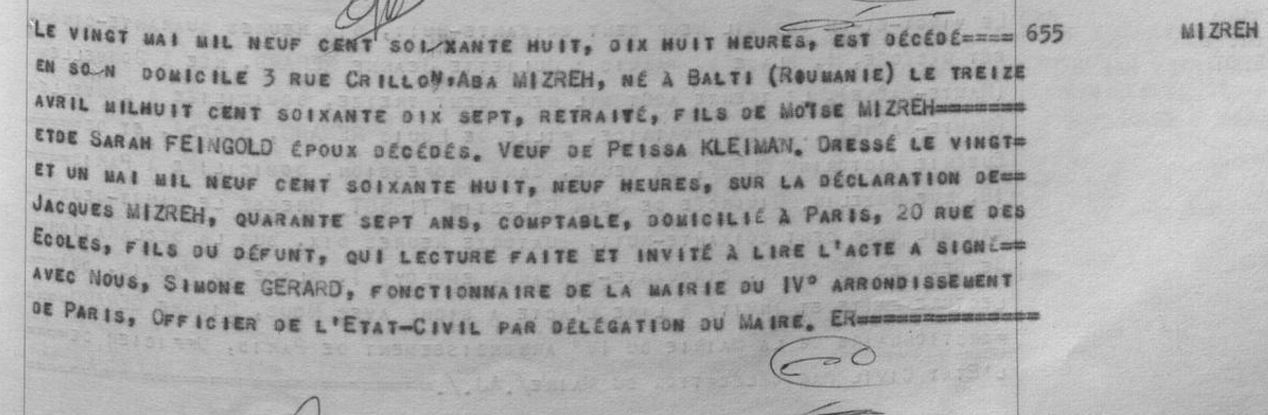 LE VINGT MAI MIL NEUF CENT SOIXANTE HUIT, DIX HUIT HEURES, EST DÉCÉDÉ==== 655 MIZREH
EN SON DOMICILE 3 RUE CRILLON,ABA MIZREH, NÉ À BALTI (ROUMANIE) LE TREIZE
AVRIL MILHUIT CENT SOIXANTE DIX SEPT, RETRAITÉ, FILS DE MOÏSE MIZREH=======
ETDE SARAH FEINGOLD ÉPOUX DÉCÉDÉS. VEUF DE PEISSA KLEIMAN. DRESSÉ LE VINGT=
ET UN MAI MIL NEUF CENT SOIXANTE HUIT, NEUF HEURES, SUR LA DÉCLARATION DE==
JACQUES MIZREH, QUARANTE SEPT ANS, COMPTABLE, DOMICILIÉ À PARIS, 20 RUE DES
ECOLES, FILS DU DÉFUNT, QUI LECTURE FAITE ET INVITÉ À LIRE L'ACTE A SIGNÉ==
AVEC NOUS, SIMONE GERARD, FONCTIONNAIRE DE LA MAIRIE DU IV° ARRONDISSEMENT
DE PARIS, OFFICIER DE L'ETAT-CIVIL PAR DÉLÉGATION DU MAIRE. ER==============